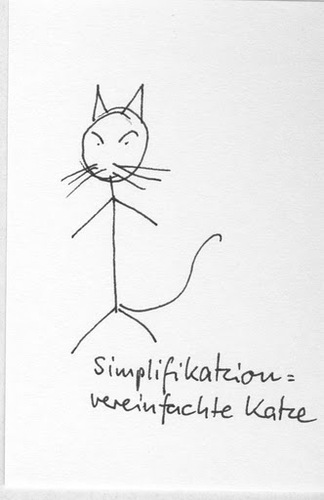 Simplifikatzion =
vereinfachte Katze